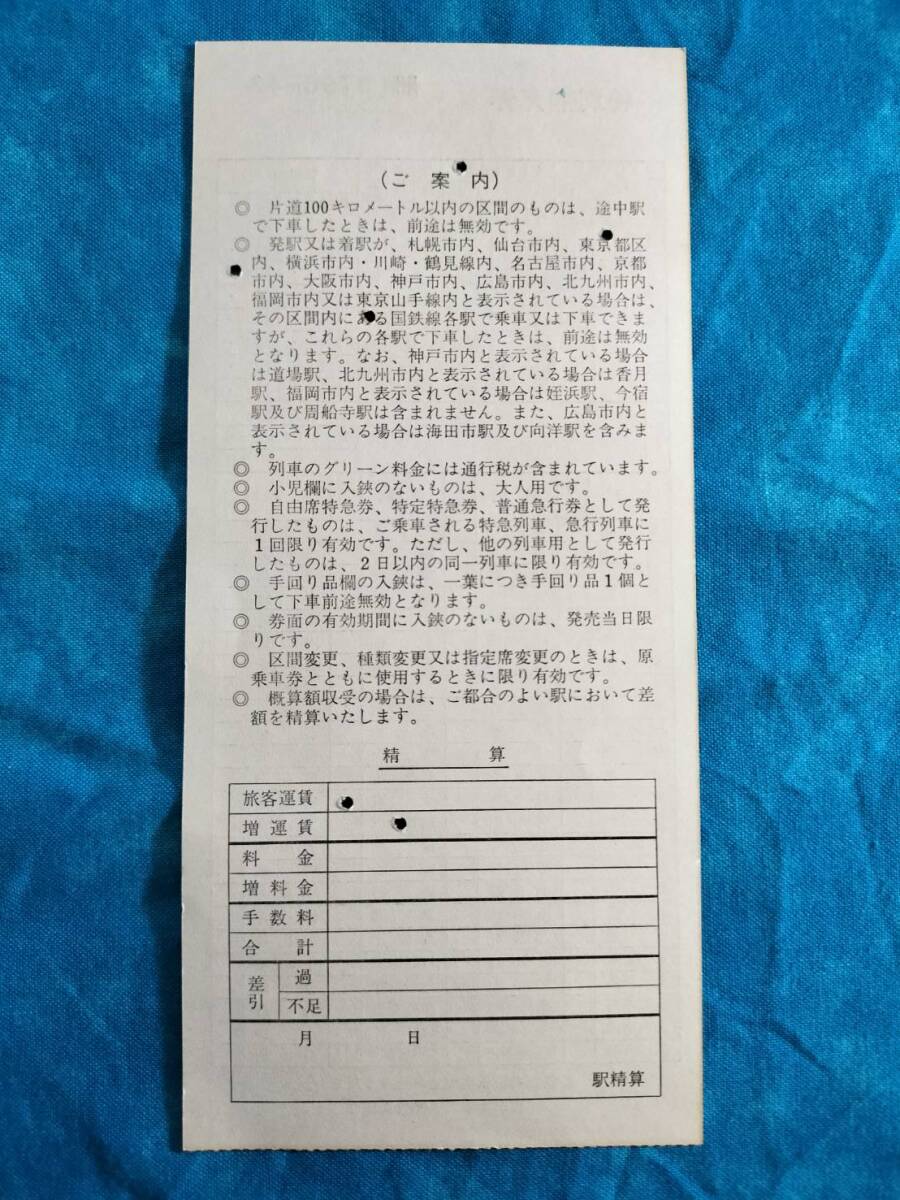 (ご案内)
◎ 片道100キロメートル以内の区間のものは、途中駅
で下車したときは、前途は無効です。
◎ 発駅又は着駅が、札幌市内、仙台市内、東京都区
内、横浜市内・川崎・鶴見線内、名古屋市内、京都
市内、大阪市内、神戸市内、広島市内、北九州市内、
福岡市内又は東京山手線内と表示されている場合は、
その区間内にある国鉄線各駅で乗車又は下車できま
すが、これらの各駅で下車したときは、前途は無効
となります。なお、神戸市内と表示されている場合
は道場駅、北九州市内と表示されている場合は香月
駅、福岡市内と表示されている場合は姪浜駅、今宿
駅及び周船寺駅は含まれません。また、広島市内と
表示されている場合は海田市駅及び向洋駅を含みま
す。
◎ 列車のグリーン料金には通行税が含まれています。
◎ 小児欄に入鋏のないものは、大人用です。
◎ 自由席特急券、特定特急券、普通急行券として発
行したものは、ご乗車される特急列車、急行列車に
1回限り有効です。ただし、他の列車用として発行
したものは、2日以内の同一列車に限り有効です。
◎ 手回り品欄の入鋏は、一葉につき手回り品1個と
して下車前途無効となります。
◎ 券面の有効期間に入鋏のないものは、発売当日限
りです。
◎ 区間変更、種類変更又は指定席変更のときは、原
乗車券とともに使用するときに限り有効です。
◎ 概算額収受の場合は、ご都合のよい駅において差
額を精算いたします。
精算
旅客運賃
増運賃
料金
増料金
手数料
合計
差引
過
不足
月 日
駅精算